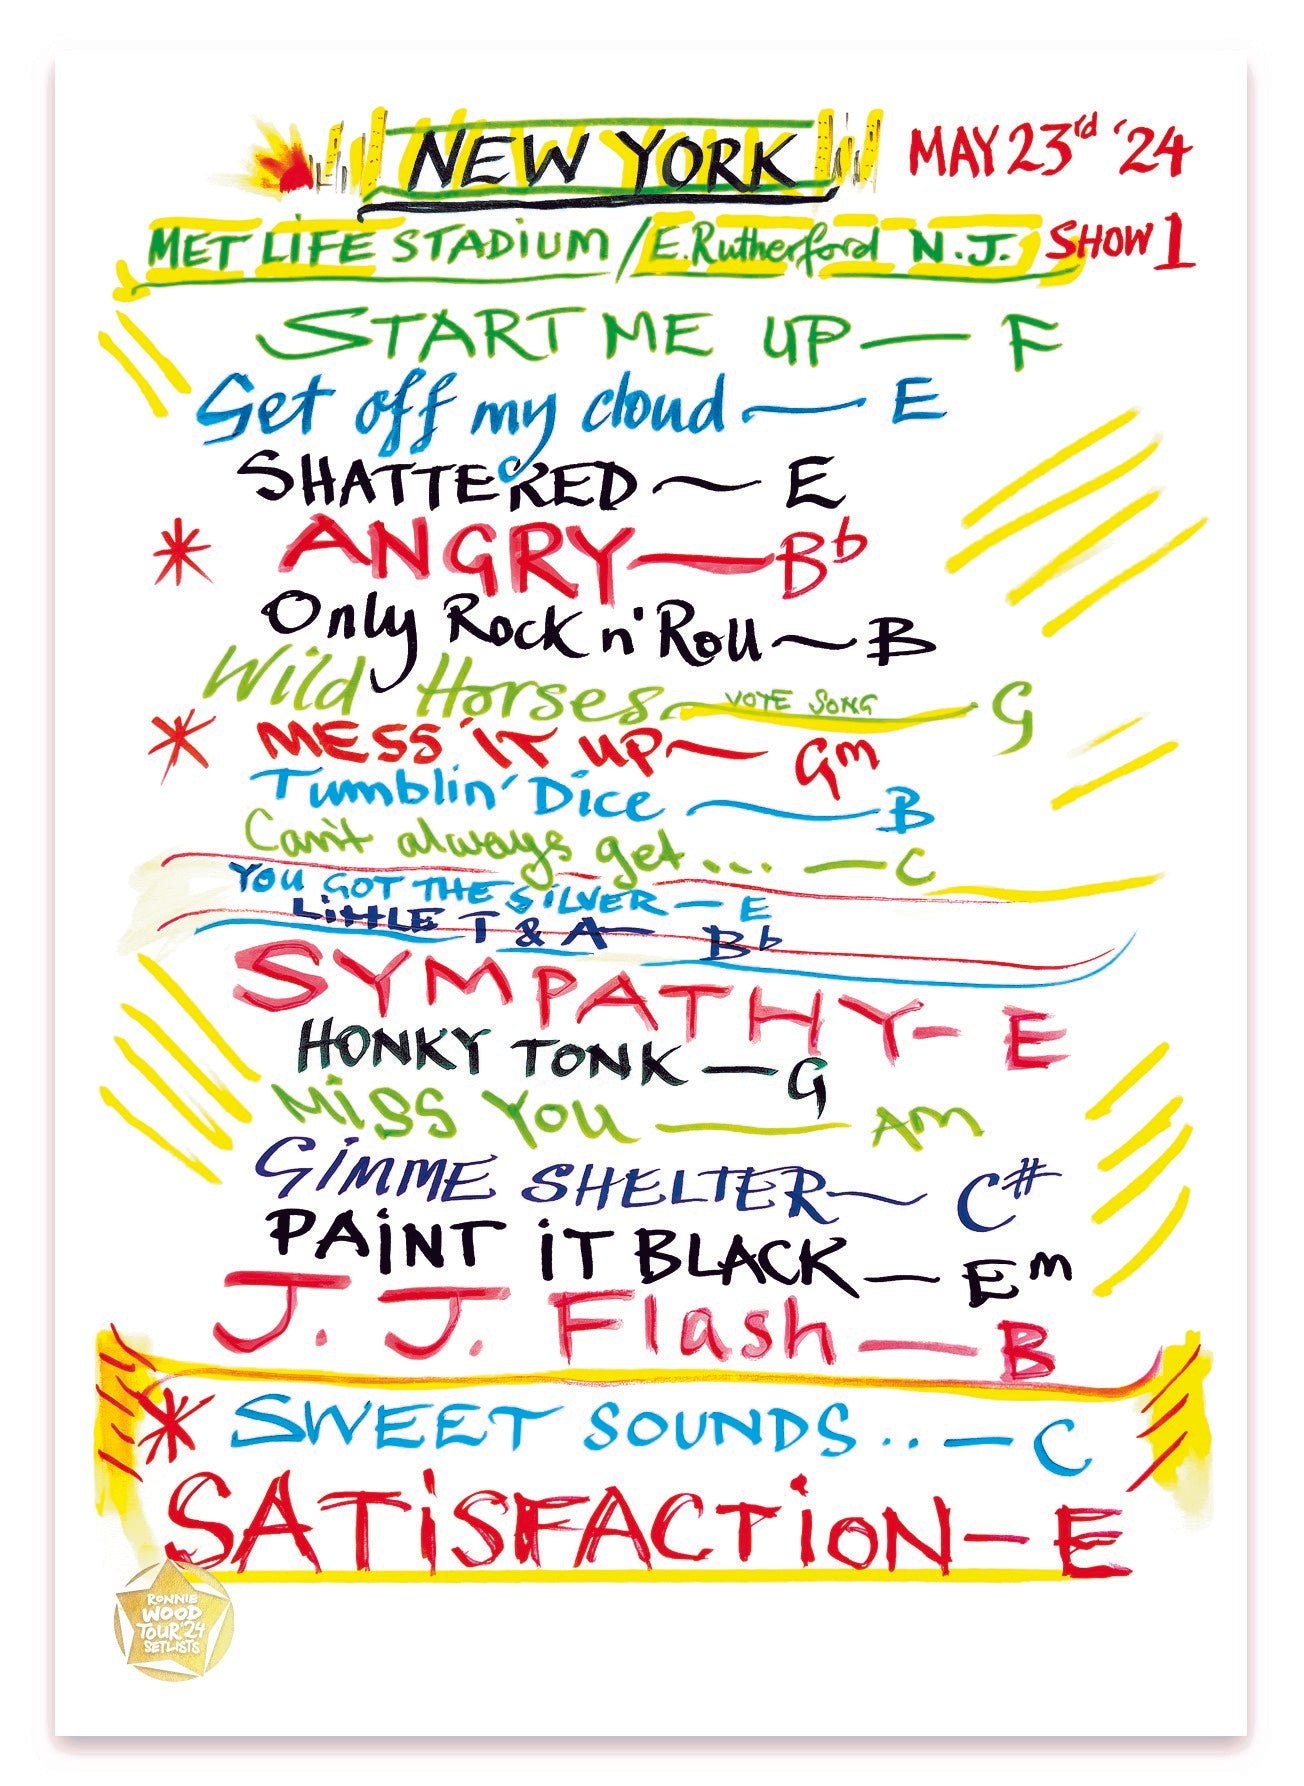 NEW YORK MAY 23rd '24
MET LIFE STADIUM / E. Rutherford N.J. SHOW 1
START ME UP — F
Get off my cloud — E
SHATTERED ~ E
* ANGRY — Bb
Only Rock n' Roll ~ B
Wild Horses VOTE SONG G
* MESS IT UP ~ Gm
Tumblin' Dice — B
Can't always get... — C
YOU GOT THE SILVER — E
LITTLE T & A — Bb
SYMPATHY — E
HONKY TONK — G
MISS YOU — Am
GIMME SHELTER ~ C#
PAINT IT BLACK — Em
J. J. Flash — B
* SWEET SOUNDS.. — C
SATISFACTION — E
RONNIE
WOOD
TOUR '24
SETLISTS